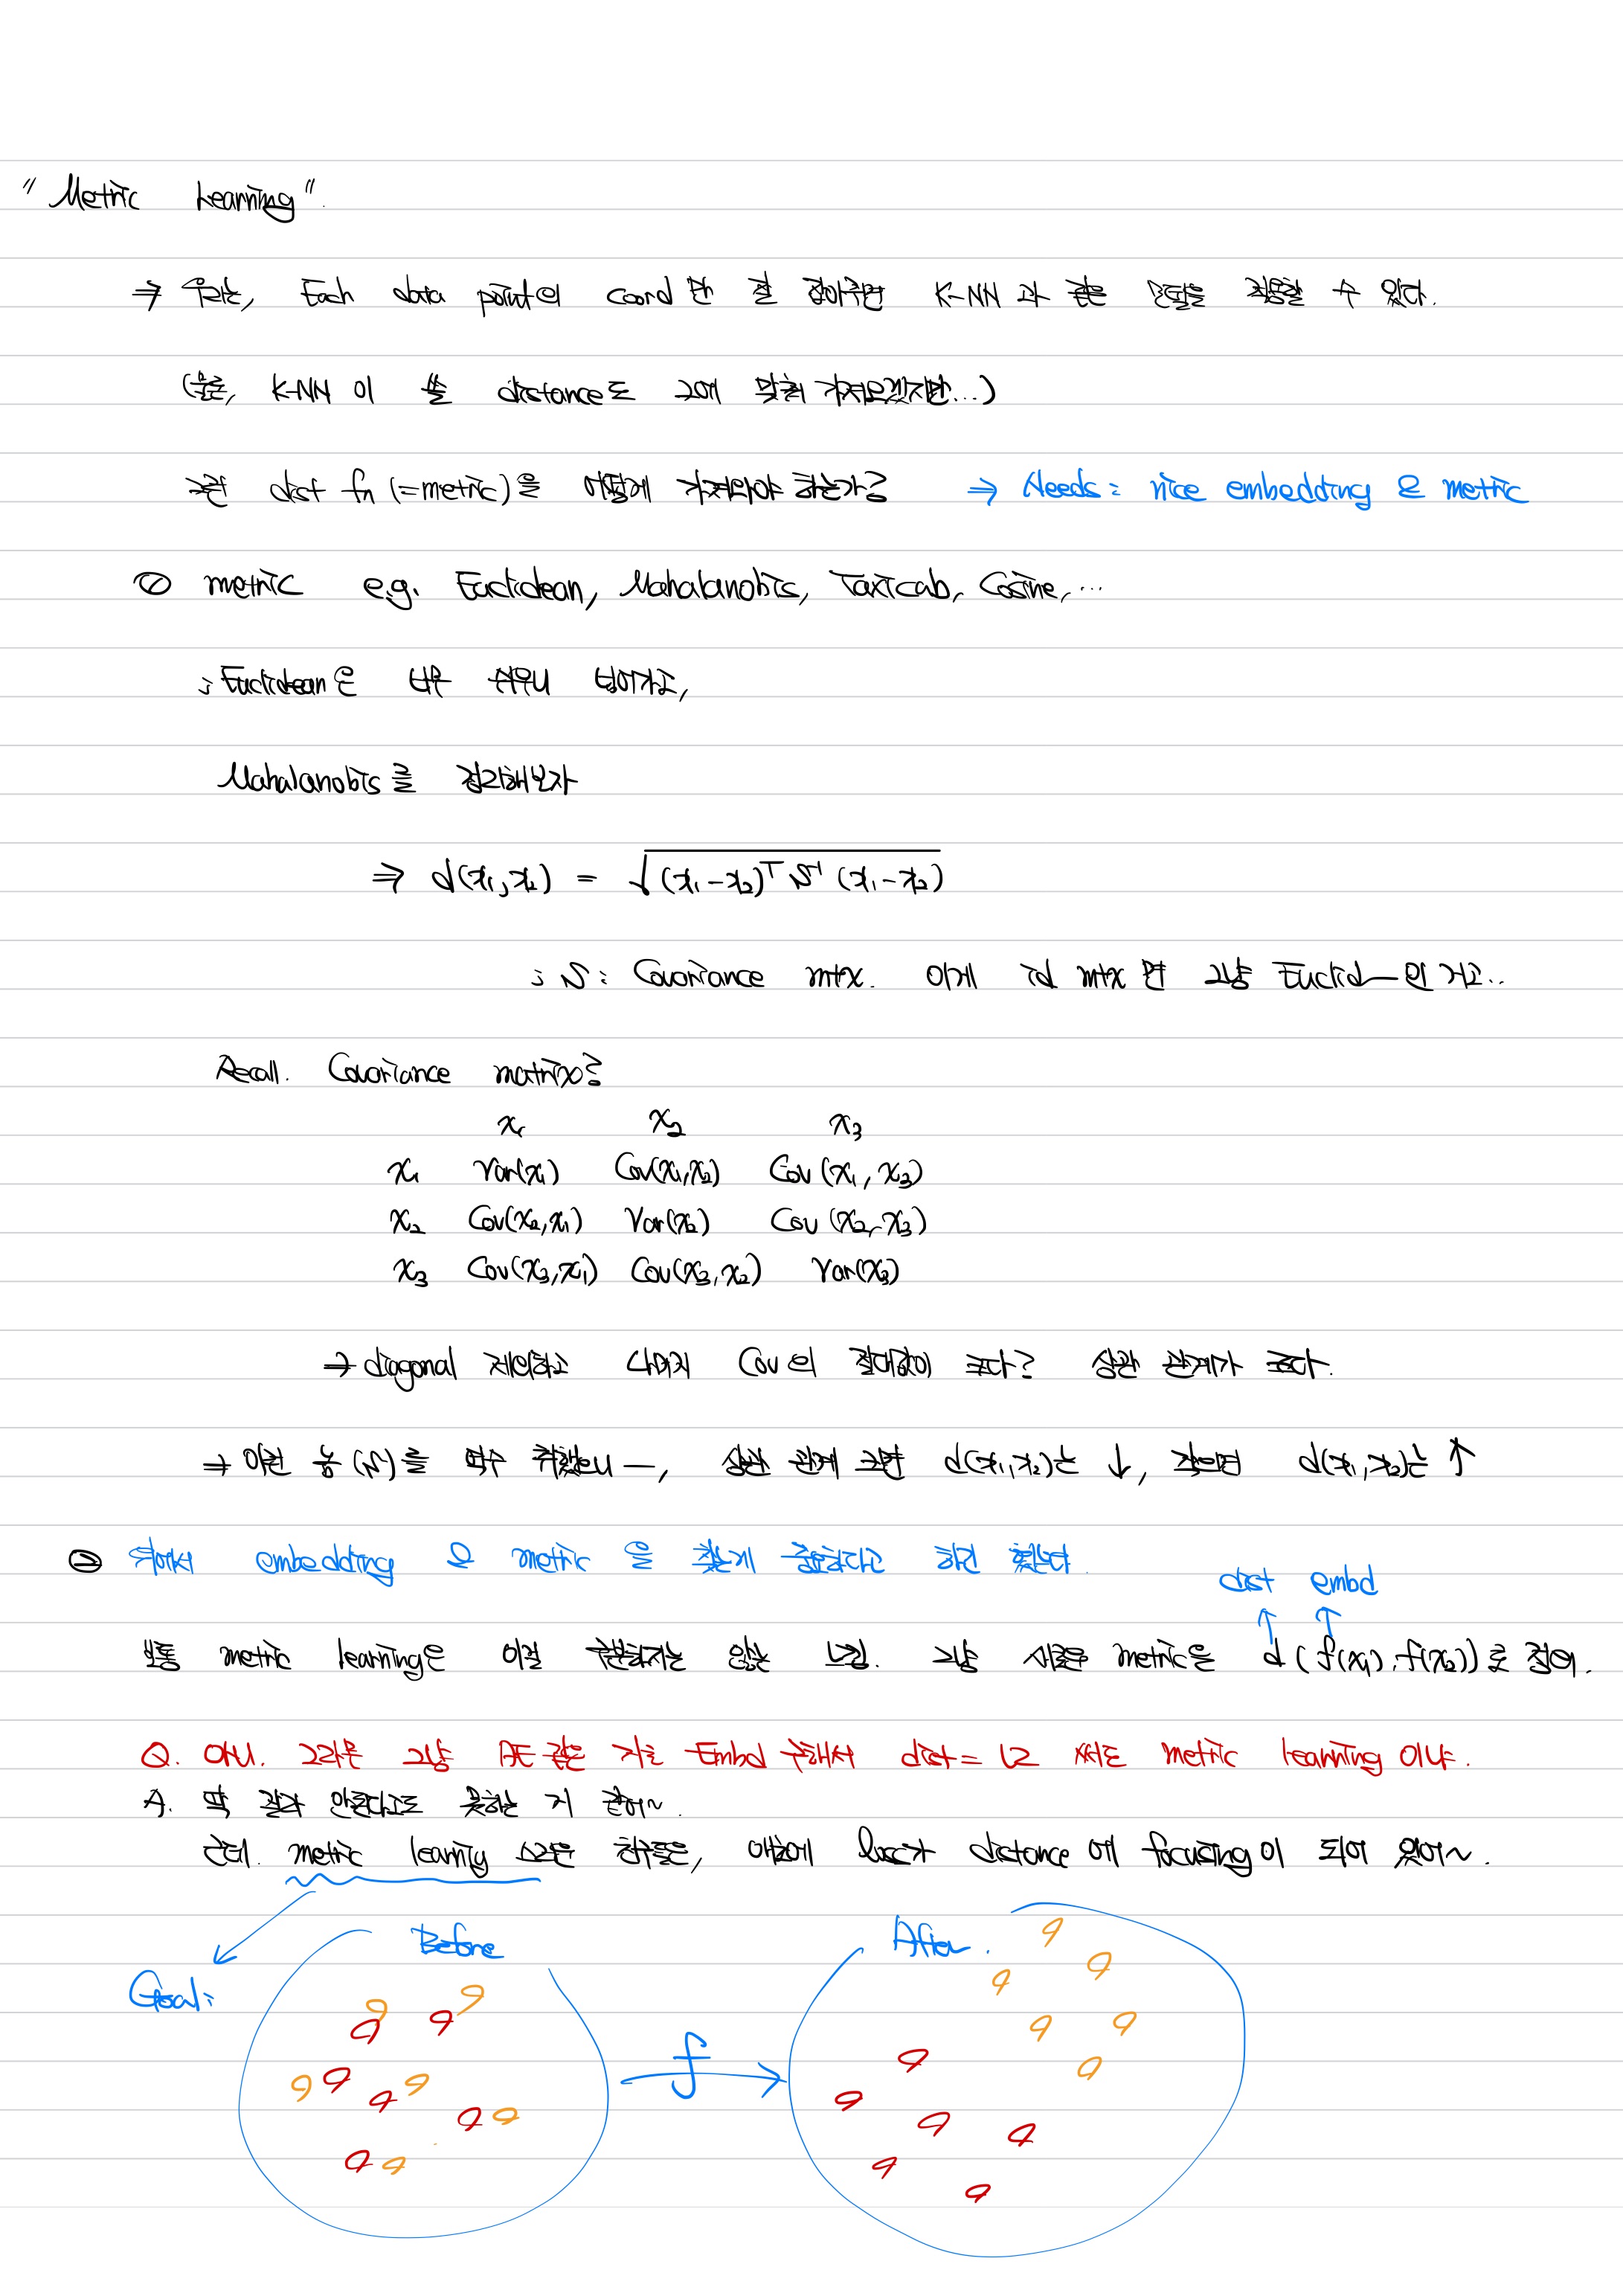 "Metric Learning".
⇒ 우리는, Each data point의 coord만 잘 잡아주면 K-NN과 같은 모델을 적용할 수 있다.
(물론, K-NN이 쓸 distance도 그에 맞춰 가져오겠지만...)
그럼 dist fn (=metric)을 어떻게 가져와야 하는가? ⇒ Needs: nice embedding 또는 metric
① metric e.g. Euclidean, Mahalanobis, Taxicab, Cosine, ...
; Euclidean은 너무 쉬우니 넘어가고,
Mahalanobis를 정리해보자
⇒ d(x₁, x₂) = √(x₁-x₂)ᵀ S⁻¹ (x₁-x₂)
; S: Covariance mtx. 이게 id mtx면 그냥 Euclid—인 거고..
Recall. Covariance matrix?
x₁ x₂ x₃
x₁ Var(x₁) Cov(x₁,x₂) Cov(x₁, x₃)
x₂ Cov(x₂,x₁) Var(x₂) Cov(x₂,x₃)
x₃ Cov(x₃,x₁) Cov(x₃,x₂) Var(x₃)
→ diagonal 제외하고 나머지 Cov의 절대값이 크다? 상관 관계가 크다.
→ 이런 놈(S)를 역수 취했으니—, 상관 관계 크면 d(x₁,x₂)는 ↓, 작으면 d(x₁,x₂)는 ↑
② 위에서 embedding 또는 metric을 찾는게 중요하다고 하긴 했는데.
dist embd
보통 metric learning은 이걸 구분하지는 않는 느낌. 그냥 새로운 metric을 d(f(x₁), f(x₂))로 잡어.
Q. 아니. 그러면 그냥 AE 같은 거로 Embd 구해서 dist = L2 써도 metric learning 이냐.
A. 딱 잘라 안된다고도 못하는 거 같어~.
근데. metric learning 스러운 친구들은, 애초에 loss가 distance에 focusing이 되어 있어~.
Goal: Before f After.